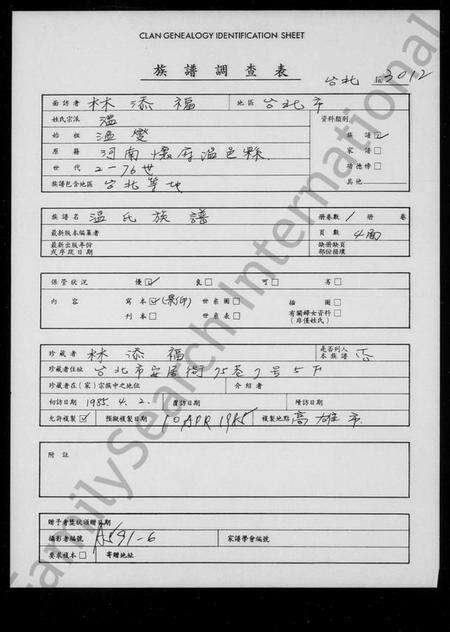 CLAN GENEALOGY IDENTIFICATION SHEET
族譜調查表
台北 3012
面訪者 林添福 地區 台北市
姓氏宗派 溫
資料類別
始祖 溫
族譜 ☑
原籍 河南 懷府溫邑縣
家譜 □
世代 2-76世
功德榜 □
族譜包含地區 台北等地
其他
族譜名 溫氏族譜 冊卷數 1 冊 卷
最新版本編纂者 頁數 4面
最新出版年份或序跋日期 缺冊缺頁部份接補
保管狀況 優☑ 良□ 可□ 劣□
內容 寫本☑(影印) 世系圖□ 插圖□
刊本□ 世系表□ 有關婦女資料□(非僅姓氏)
珍藏者 林添福 是否列入本族譜 否
珍藏者住址 台北市安居街75巷7号5F
珍藏者在(家)宗族中之地位 介紹者
初訪日期 1985. 4. 2. 複訪日期 隨訪日期
允許複製☑ 預擬複製日期 10 APR 1985 複製地點 高雄市
附註
贈予者獎狀頒贈日期
攝影者編號 A591-6 家譜學會編號
要求複本□ 寄贈地址
FamilySearch International